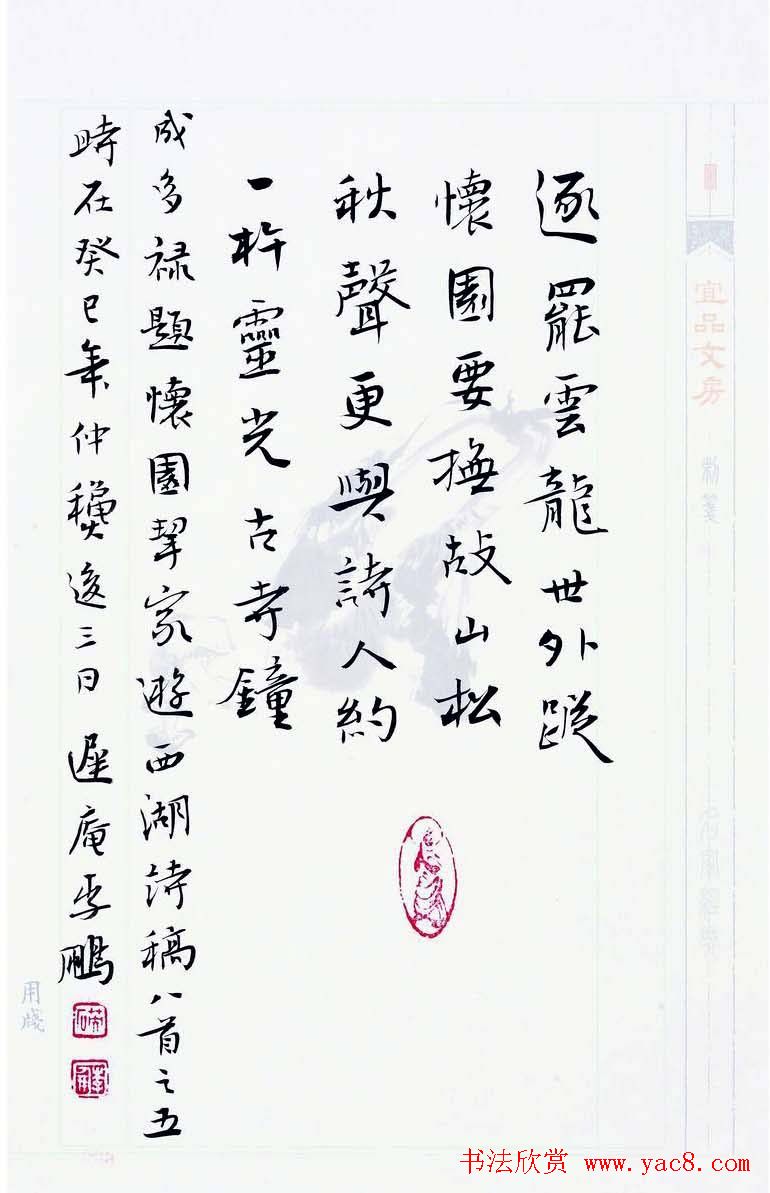 逐罷雲龍世外蹤
懷園要撫故山松
秋聲更與詩人約
一杵靈光古寺鐘
成多祿題懷園挈家遊西湖詩稿八首之五
時在癸巳年仲穐後三日遲庵李鵬
宜品文房
用牋
书法欣赏 www.yac8.com